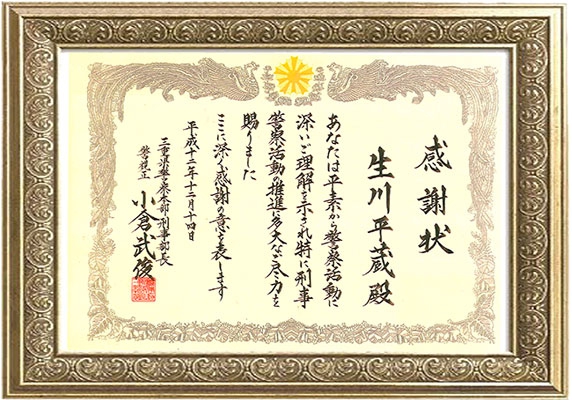 感謝状
生川平蔵殿
あなたは平素から警察活動に
深いご理解を示され特に刑事
警察活動の推進に多大なご尽力を
賜りました
ここに深く感謝の意を表します
平成十二年十二月十四日
三重県警察本部刑事部長
警視正 小倉武俊